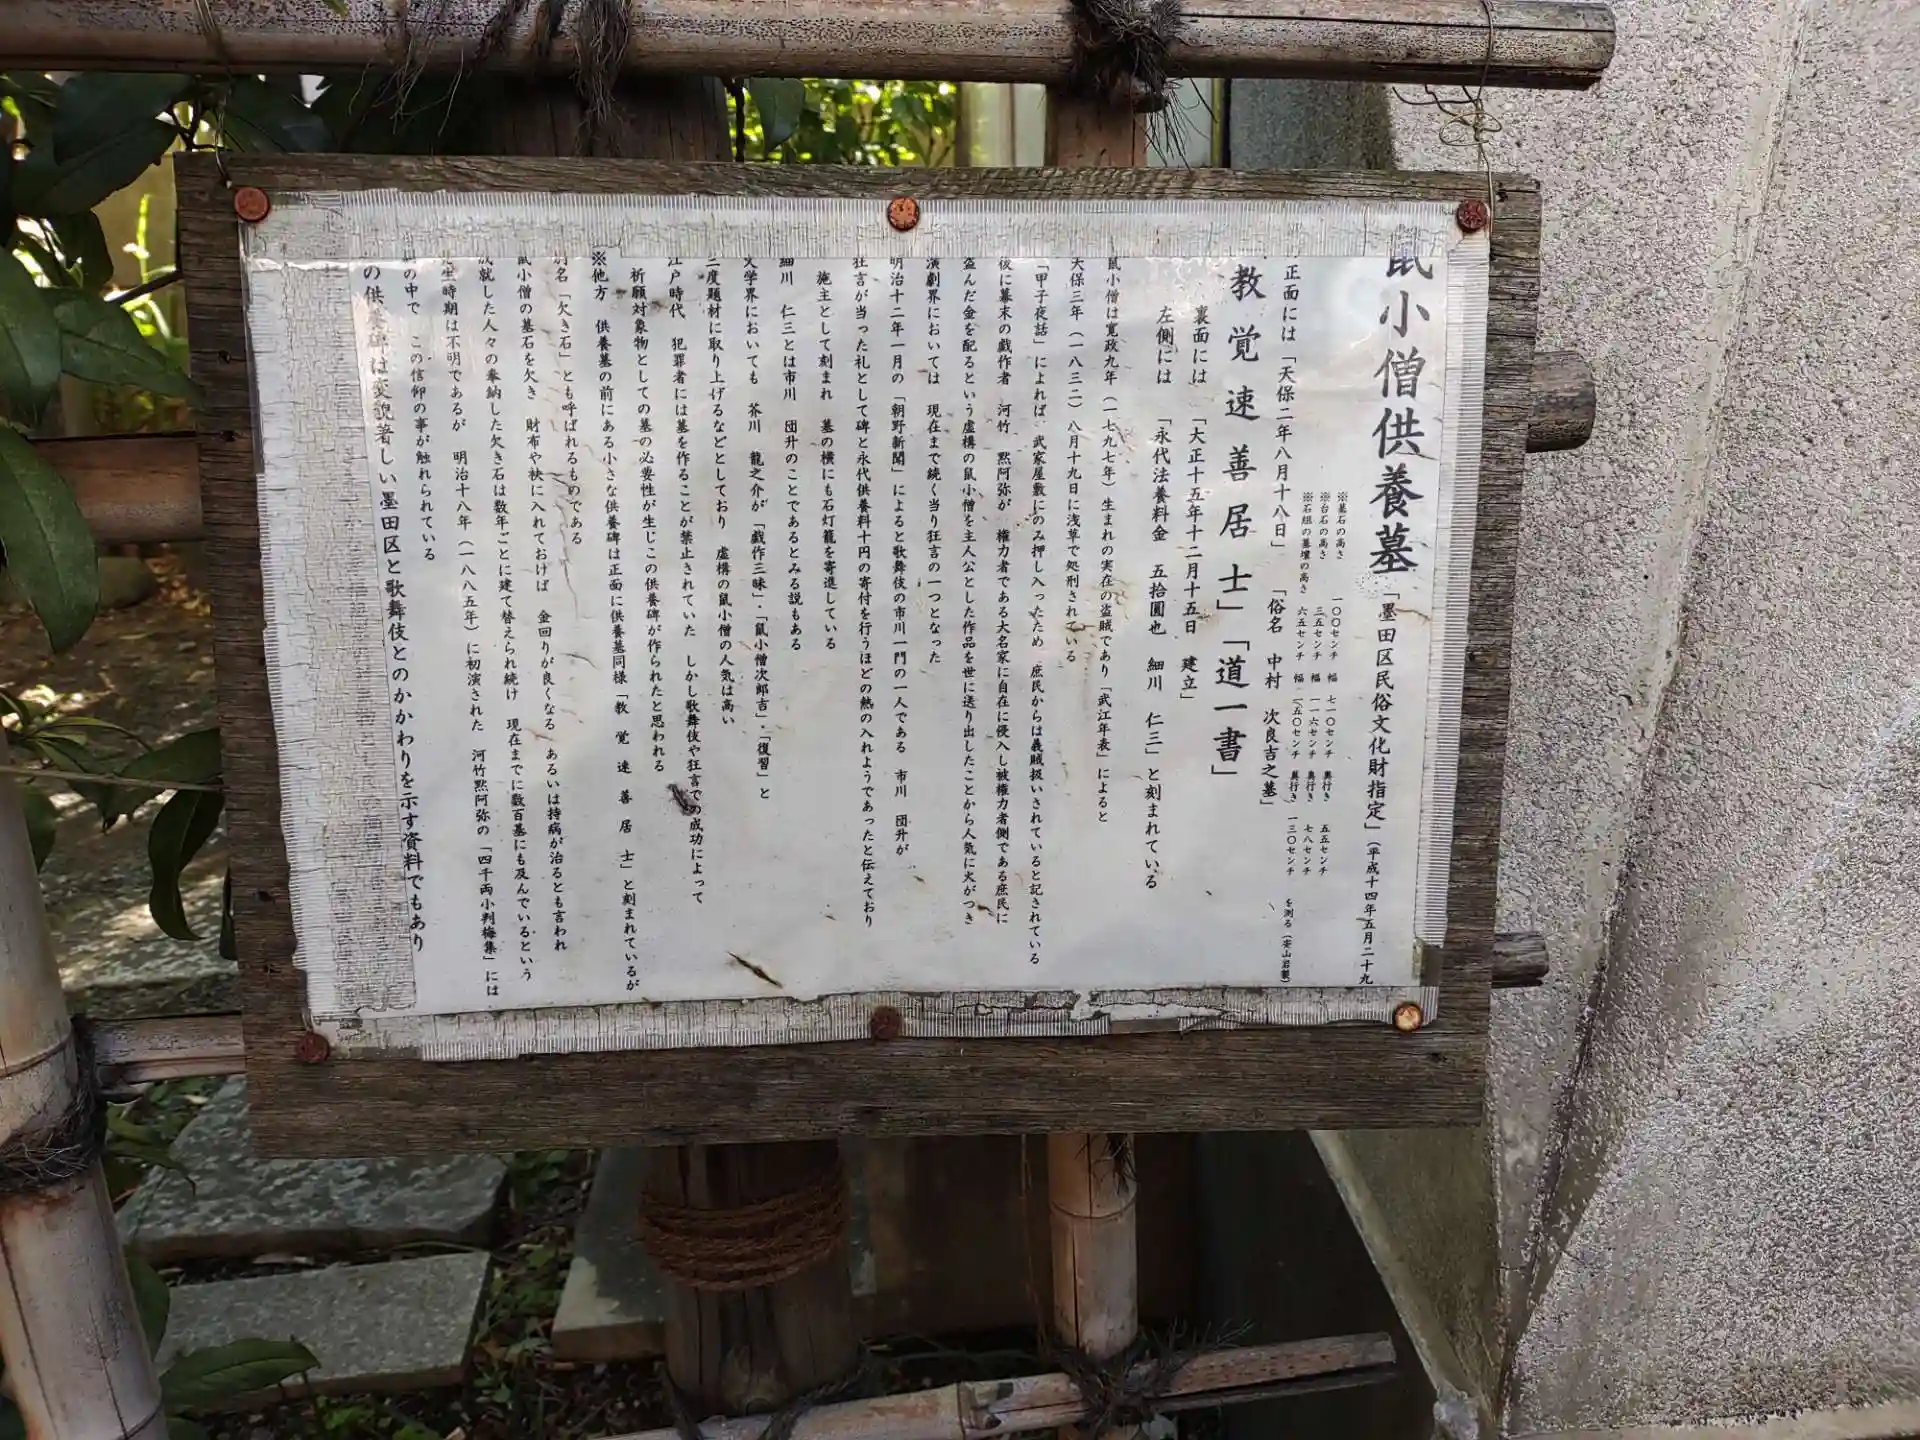 鼠小僧供養墓 「墨田区民俗文化財指定」（平成十四年五月二十九
※墓石の高さ 一〇〇センチ 幅 七一〇センチ 奥行き 五五センチ
※台石の高さ 三五センチ 幅 一一六センチ 奥行き 七八センチ
※石組の墓壇の高さ 六五センチ 幅 一五〇センチ 奥行き 一三〇センチ を測る（安山岩製）
正面には「天保二年八月十八日」 「俗名 中村 次良吉之墓」
教覚速善居士」「道一書」
裏面には 「大正十五年十二月十五日 建立」
左側には 「永代法養料金 五拾圓也 細川 仁三」と刻まれている
鼠小僧は寛政九年（一七九七年）生まれの実在の盗賊であり「武江年表」によると
天保三年（一八三二）八月十九日に浅草で処刑されている
「甲子夜話」によれば 武家屋敷にのみ押し入ったため 庶民からは義賊扱いされていると記されている
後に幕末の戯作者 河竹 黙阿弥が 権力者である大名家に自在に侵入し被権力者側である庶民に
盗んだ金を配るという虚構の鼠小僧を主人公とした作品を世に送り出したことから人気に火がつき
演劇界においては 現在まで続く当り狂言の一つとなった
明治十二年一月の「朝野新聞」によると歌舞伎の市川一門の一人である 市川 団升が
狂言が当った礼として碑と永代供養料十円の寄付を行うほどの熱の入れようであったと伝えており
施主として刻まれ 墓の横にも石灯籠を寄進している
細川 仁三とは市川 団升のことであるとみる説もある
文学界においても 芥川 龍之介が「戯作三昧」・「鼠小僧次郎吉」・「復習」と
三度題材に取り上げるなどとしており 虚構の鼠小僧の人気は高い
江戸時代 犯罪者には墓を作ることが禁止されていた しかし歌舞伎や狂言での成功によって
祈願対象物としての墓の必要性が生じこの供養碑が作られたと思われる
※他方 供養墓の前にある小さな供養碑は正面に供養墓同様「教 覚 速 善 居 士」と刻まれているが
別名「欠き石」とも呼ばれるものである
鼠小僧の墓石を欠き 財布や袂に入れておけば 金回りが良くなる あるいは持病が治るとも言われ
成就した人々の奉納した欠き石は数年ごとに建て替えられ続け 現在までに数百基にも及んでいるという
発生時期は不明であるが 明治十八年（一八八五年）に初演された 河竹黙阿弥の「四千両小判梅葉」には
の中で この信仰の事が触れられている
の供養碑は変貌著しい墨田区と歌舞伎とのかかわりを示す資料でもあり